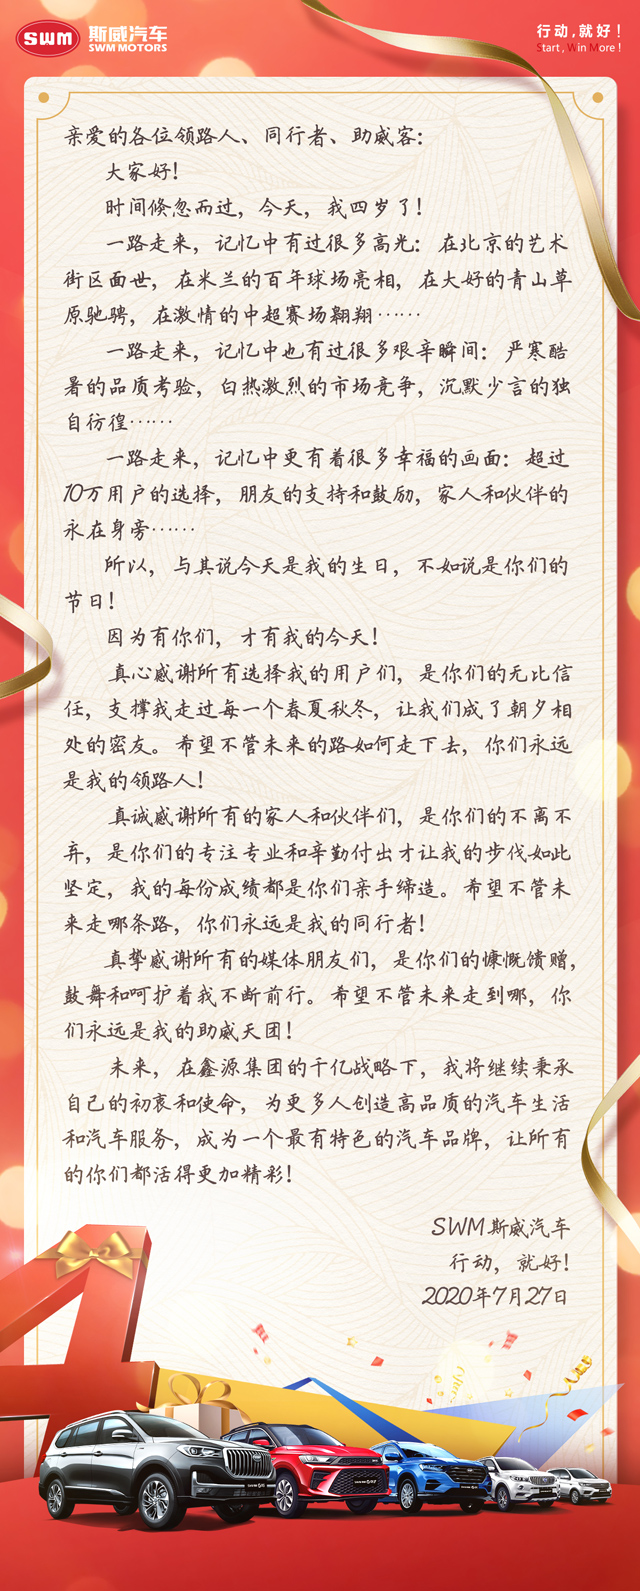 SWM 斯威汽车
SWM MOTORS
行动,就好!
Start, Win More!
亲爱的各位领路人、同行者、助威客:
大家好!
时间倏忽而过,今天,我四岁了!
一路走来,记忆中有过很多高光:在北京的艺术
街区面世,在米兰的百年球场亮相,在大好的青山草
原驰骋,在激情的中超赛场翱翔……
一路走来,记忆中也有过很多艰辛瞬间:严寒酷
暑的品质考验,白热激烈的市场竞争,沉默少言的独
自彷徨……
一路走来,记忆中更有着很多幸福的画面:超过
10万用户的选择,朋友的支持和鼓励,家人和伙伴的
永在身旁……
所以,与其说今天是我的生日,不如说是你们的
节日!
因为有你们,才有我的今天!
真心感谢所有选择我的用户们,是你们的无比信
任,支撑我走过每一个春夏秋冬,让我们成了朝夕相
处的密友。希望不管未来的路如何走下去,你们永远
是我的领路人!
真诚感谢所有的家人和伙伴们,是你们的不离不
弃,是你们的专注专业和辛勤付出才让我的步伐如此
坚定,我的每份成绩都是你们亲手缔造。希望不管未
来走哪条路,你们永远是我的同行者!
真挚感谢所有的媒体朋友们,是你们的慷慨馈赠,
鼓舞和呵护着我不断前行。希望不管未来走到哪,你
们永远是我的助威天团!
未来,在鑫源集团的千亿战略下,我将继续秉承
自己的初衷和使命,为更多人创造高品质的汽车生活
和汽车服务,成为一个最有特色的汽车品牌,让所有
的你们都活得更加精彩!
SWM斯威汽车
行动,就好!
2020年7月27日